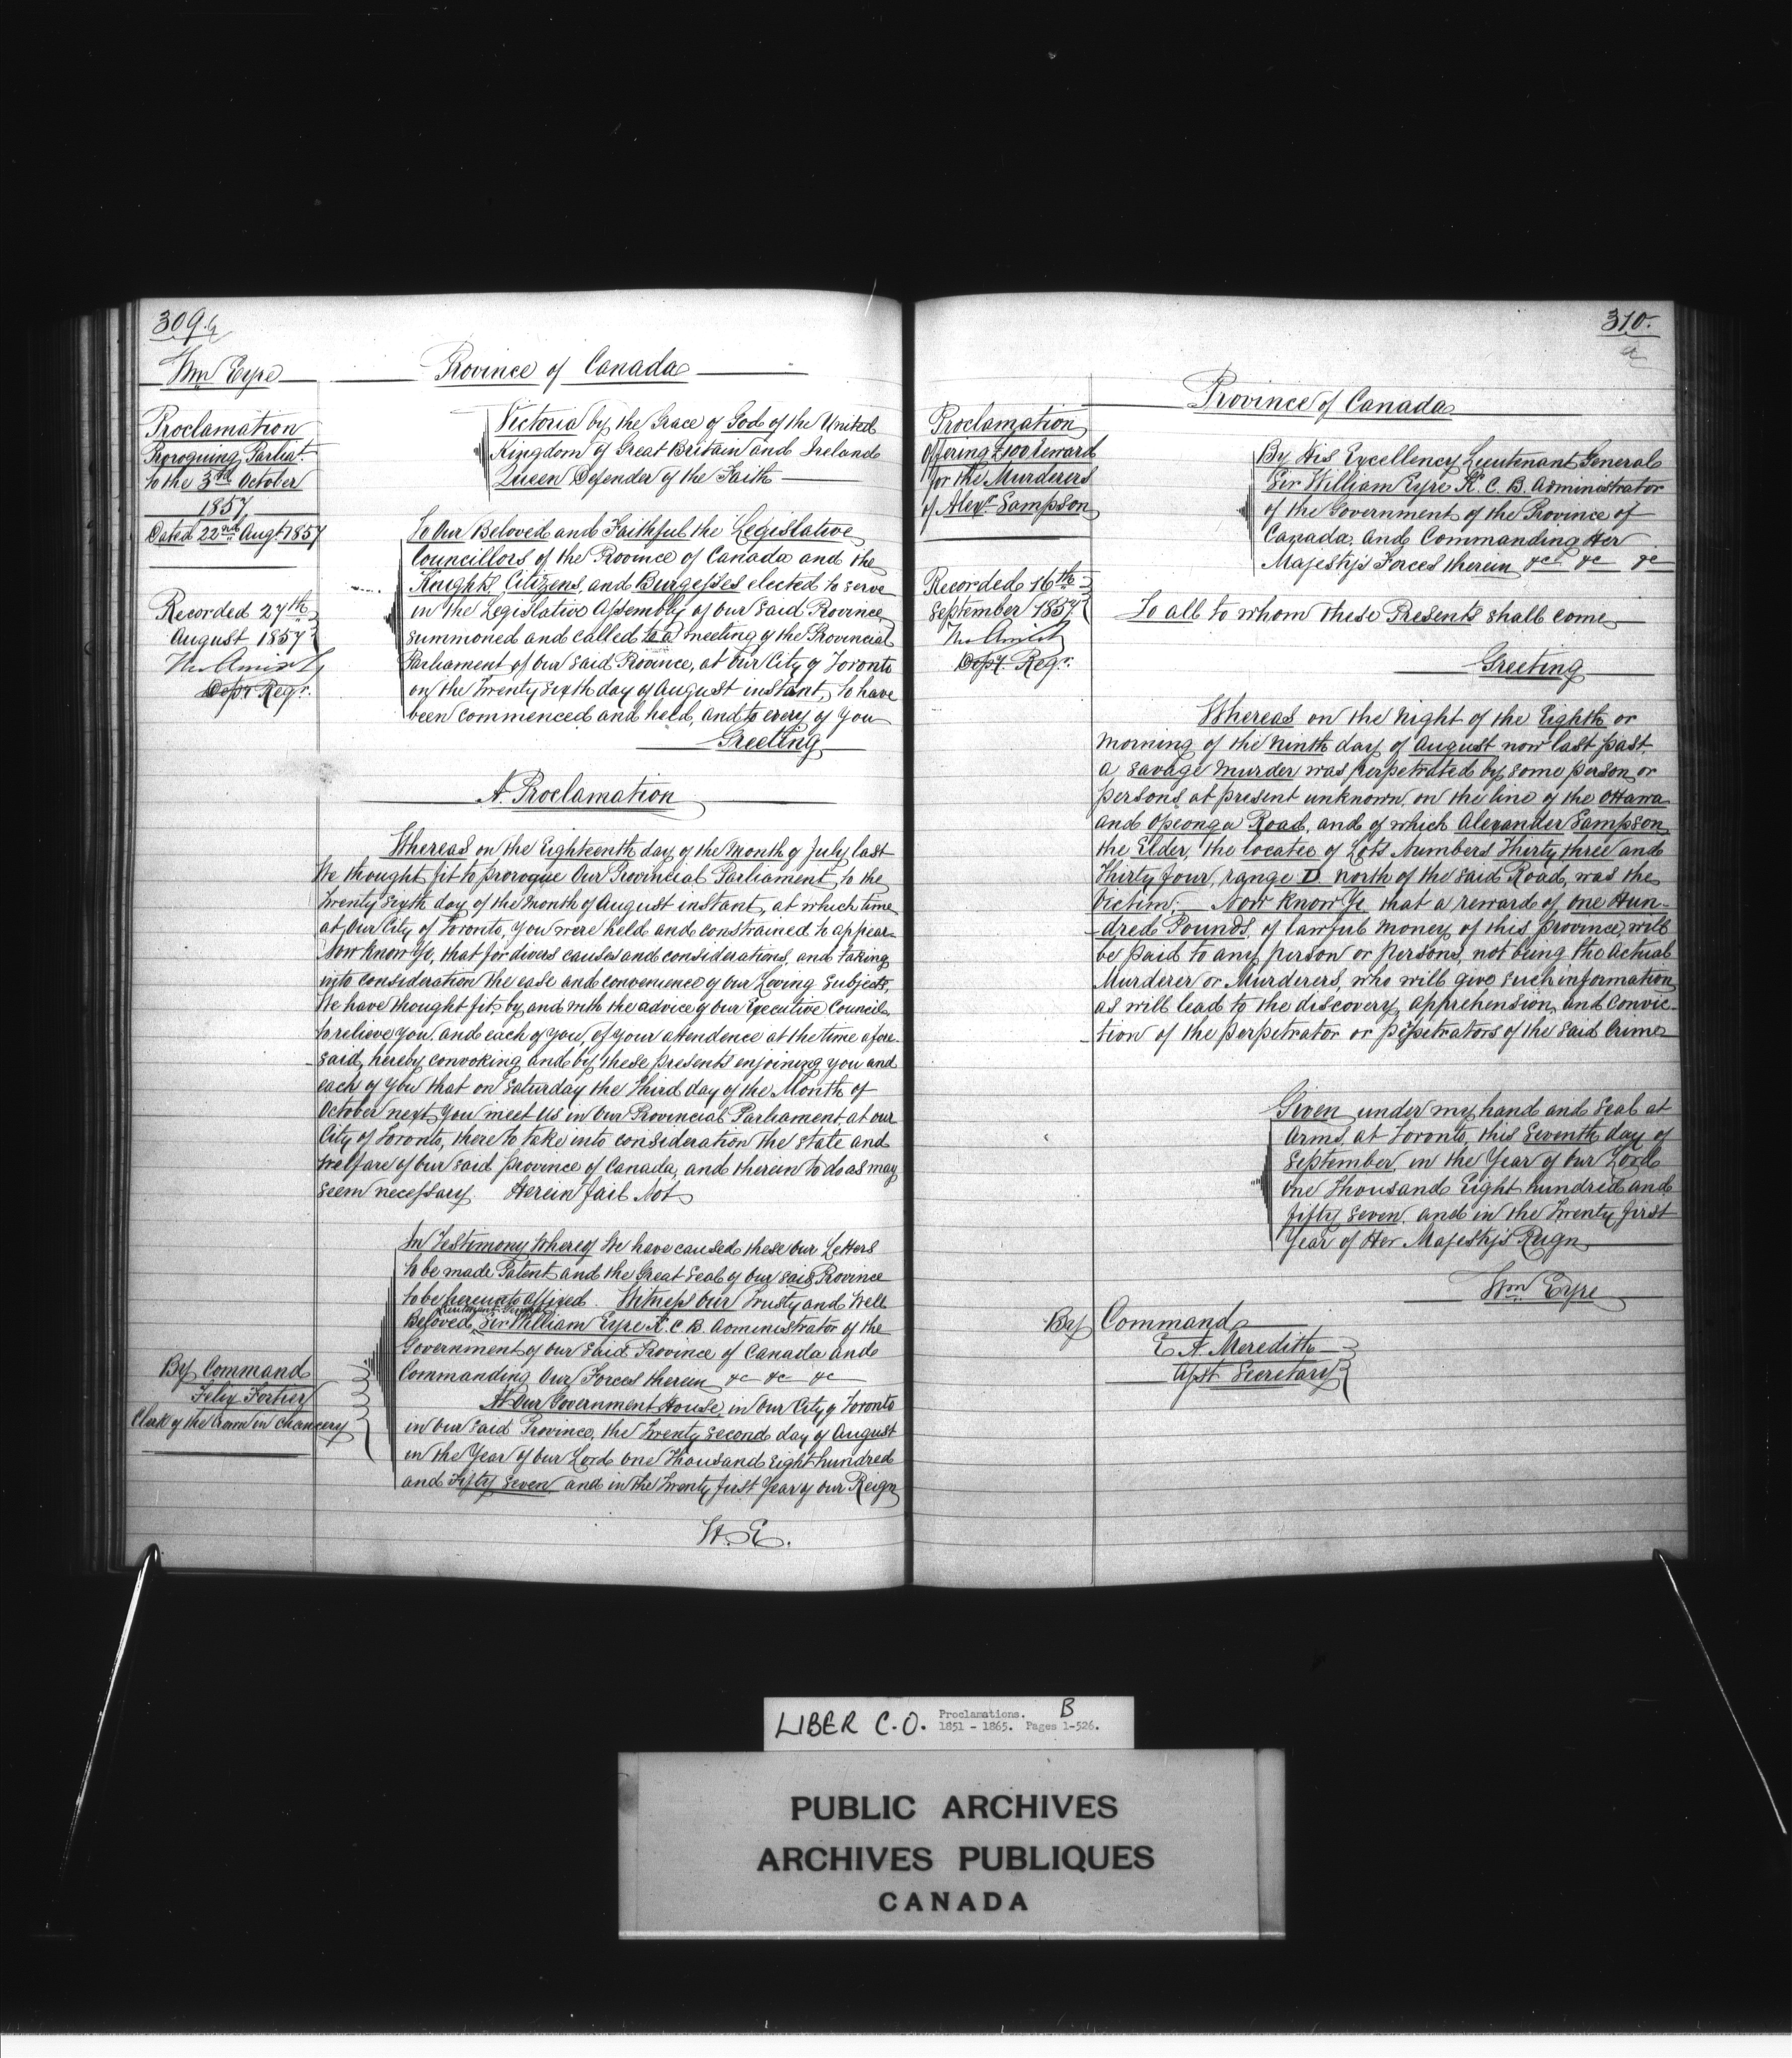 309.
Wm Eyre
Province of Canada
Proclamation
Proroguing Parliat.
to the 3rd October
1857
Dated 22nd Augt 1857
Recorded 27th
August 1857
Depy Regr.
Victoria by the Grace of God of the United
Kingdom of Great Britain and Ireland
Queen Defender of the Faith
To Our Beloved and Faithful the Legislative
Councillors of the Province of Canada and the
Knights, Citizens, and Burgesses elected to serve
in the Legislative Assembly of our said Province
summoned and called to a meeting of the Provincial
Parliament of our said Province, at our City of Toronto
on the Twenty sixth day of August instant, to have
been commenced and held, and to every of you
Greeting
A Proclamation
Whereas on the Eighteenth day of the Month of July last
We thought fit to prorogue Our Provincial Parliament to the
Twenty sixth day of the Month of August instant, at which time
at Our City of Toronto, you were held and constrained to appear.
Now know Ye, that for divers causes and considerations, and taking
into consideration the ease and convenience of our Loving Subjects,
We have thought fit by and with the advice of our Executive Council
to relieve you, and each of you, of your attendence at the time afore-
said, hereby convoking and by these presents enjoining you and
each of you that on Saturday the third day of the Month of
October next you meet us in our Provincial Parliament, at our
City of Toronto, there to take into consideration the state and
welfare of our said province of Canada, and therein to do as may
seem necessary. Herein fail Not
In Testimony Whereof We have caused these our Letters
to be made Patent and the Great Seal of our said Province
to be hereunto affixed. Witness Our Trusty and Well
Lieutenant General
Beloved Sir William Eyre K. C. B. Administrator of the
Government of our said Province of Canada and
Commanding Our Forces therein &c &c &c
At Our Government House, in Our City of Toronto
in our said Province, the Twenty second day of August
in the Year of our Lord one Thousand Eight hundred
and Fifty Seven and in the Twenty first Year of our Reign
W. E.
By Command
Felix Fortier
Clerk of the Crown in Chancery
310.
Province of Canada
Proclamation
Offering £100 Reward
for the Murderers
of Alexr Sampson
Recorded 16th
September 1857
Depy. Regr.
By His Excellency Lieutenant General
Sir William Eyre K. C. B. Administrator
of the Government of the Province of
Canada and Commanding Her
Majesty's Forces therein &c &c &c
To all to whom these Presents shall come
Greeting
Whereas on the night of the Eighth or
morning of the ninth day of August now last past
a savage murder was perpetrated by some person or
persons at present unknown, on the line of the Ottawa
and Opeongo Road, and of which Alexander Sampson
the Elder, the locatee of Lots Numbers Thirty three and
Thirty four, range D north of the said Road, was the
victim; Now Know Ye that a reward of one Hun-
dred Pounds, of lawful money of this province, will
be paid to any person or persons, not being the actual
Murderer or Murderers, who will give such information
as will lead to the discovery, apprehension, and convic-
tion of the perpetrator or pepetrators of the said Crime
Given under my hand and seal at
Arms, at Toronto, this Seventh day of
September, in the Year of Our Lord
One Thousand Eight hundred and
fifty seven, and in the Twenty first
Year of Her Majesty's Reign
Wm. Eyre
By Command
E. A. Meredith
Asst Secretary
LIBER C.O. Proclamations. B
1851 - 1865. Pages 1-526.
PUBLIC ARCHIVES
ARCHIVES PUBLIQUES
CANADA